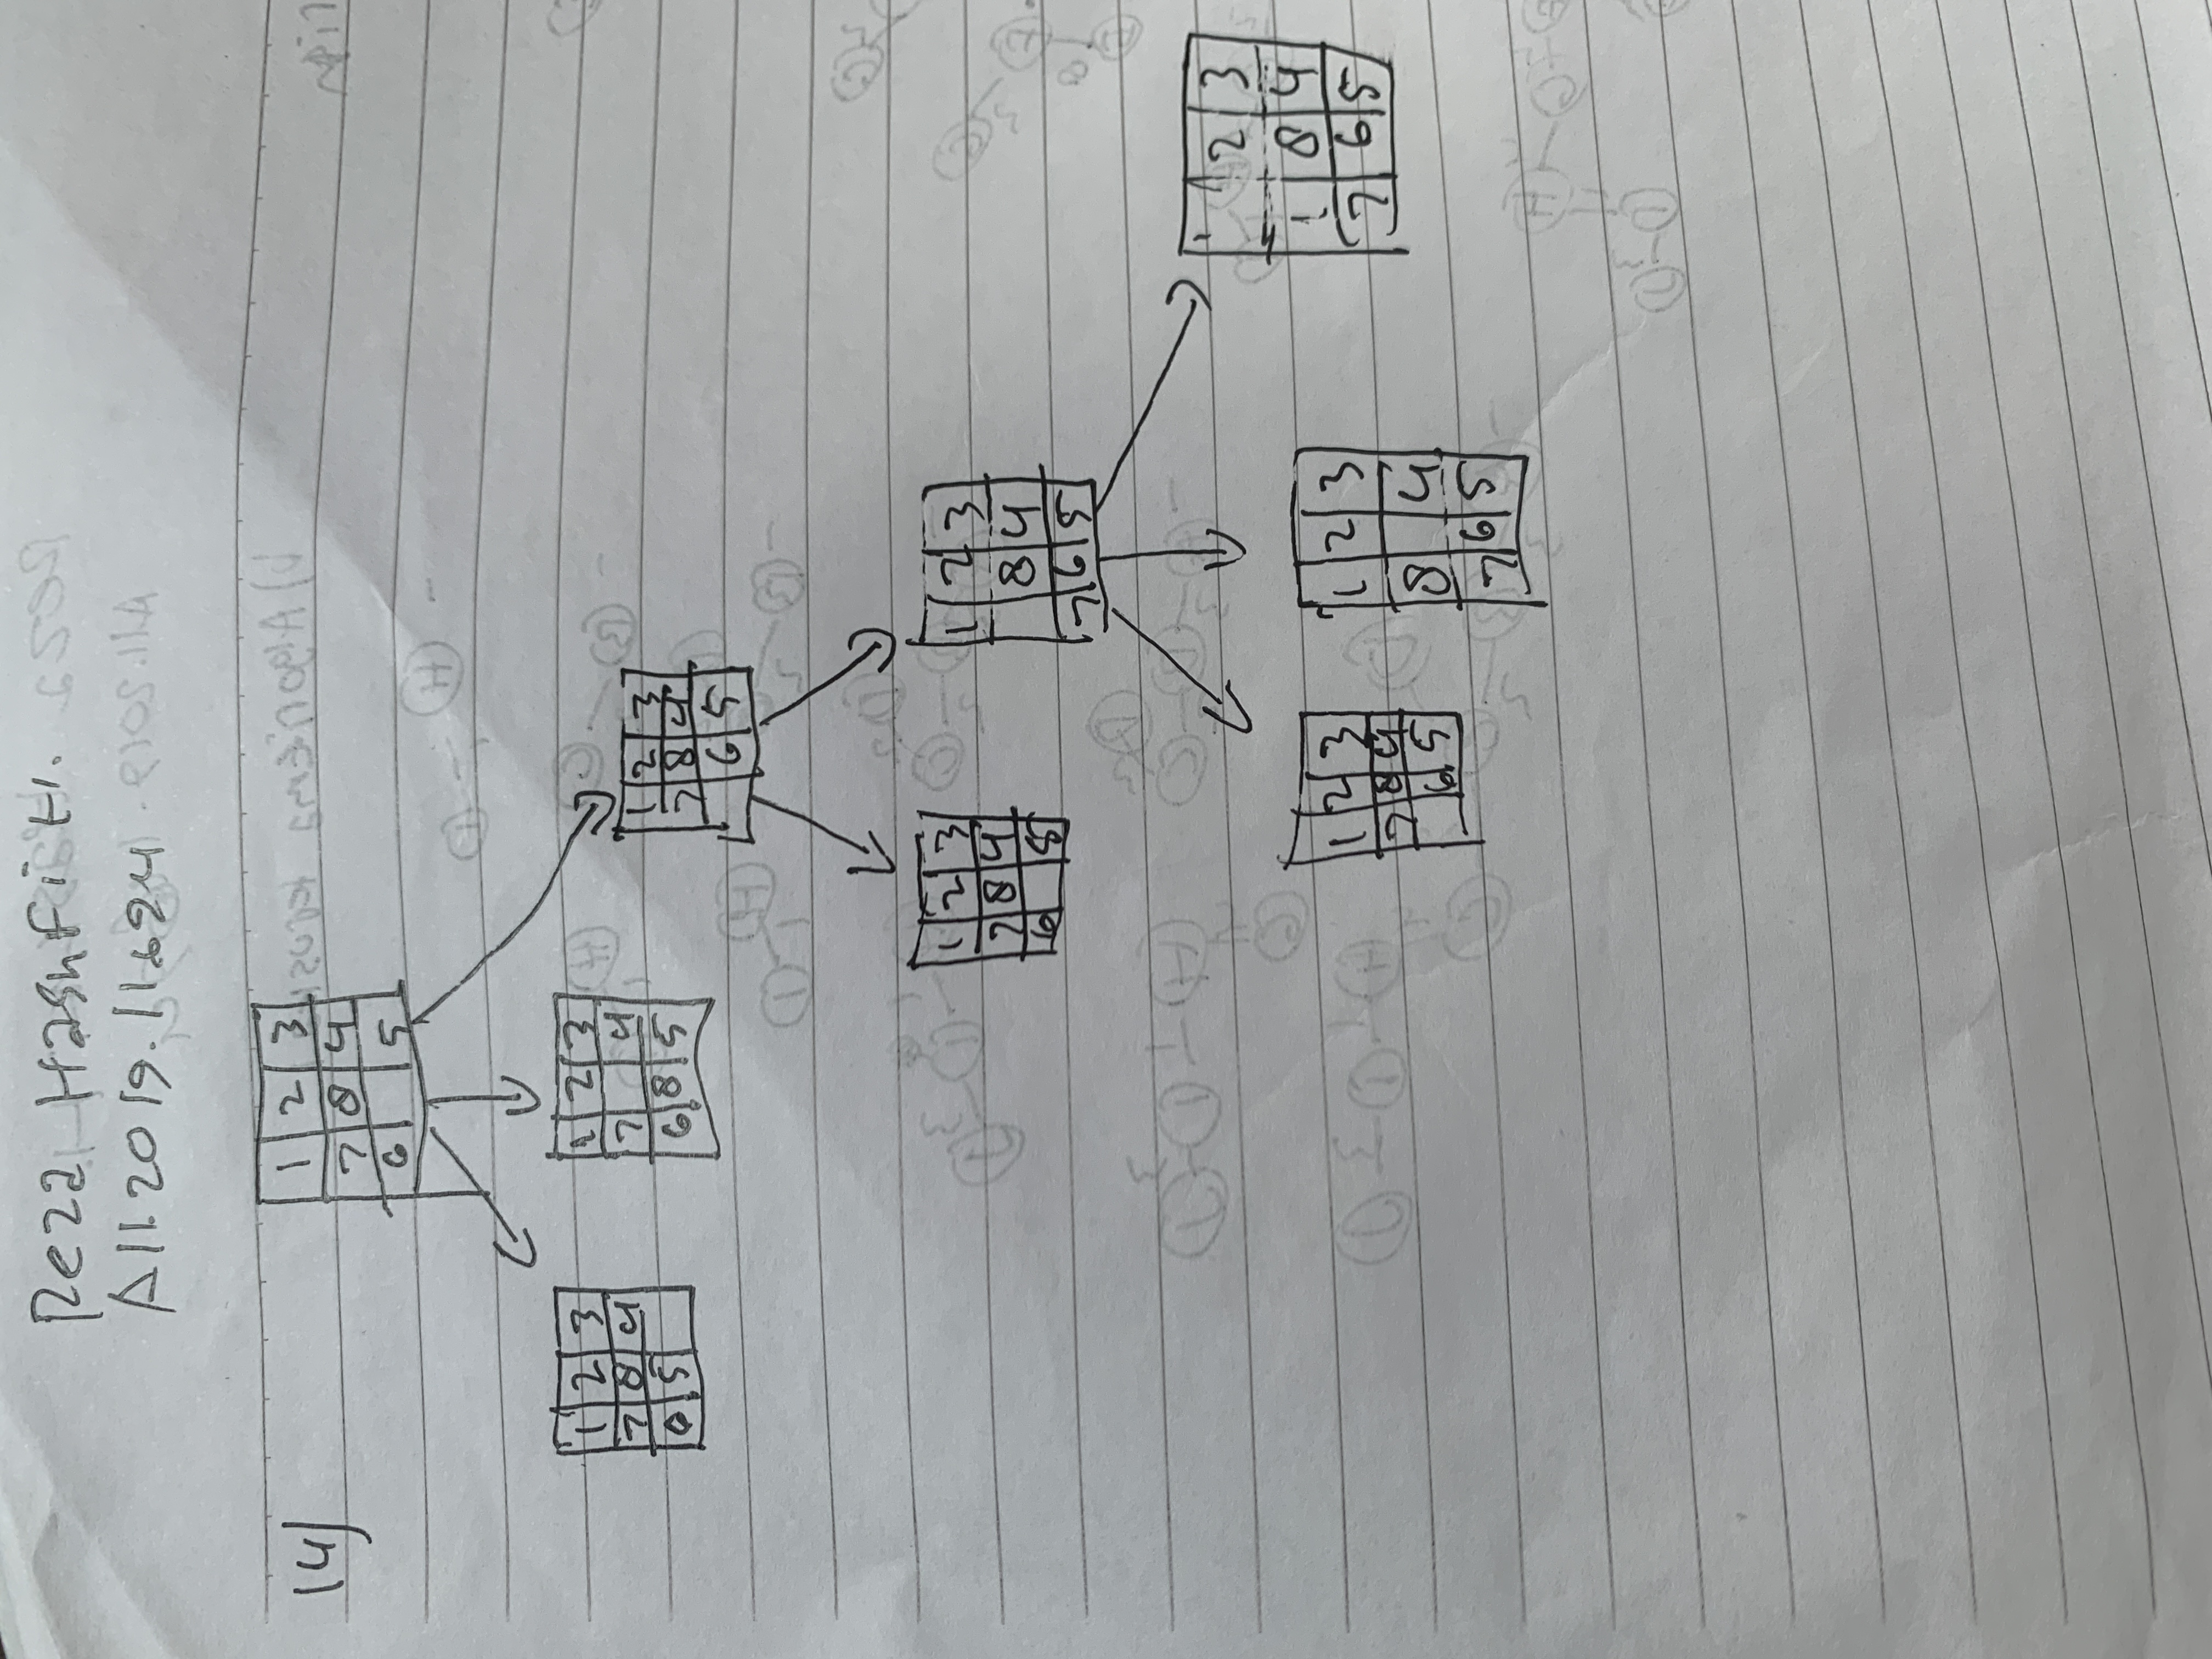 Reza Hashfi H.
A11.2019.11624
14)
1 2 3
7 8 4
6 5
1 2 3
7 8 4
6 5
1 2 3
7 4
6 8 5
1 2 3
7 8 4
6 5
1 2 3
7 8 4
6 5
1 2 3
8 4
7 6 5
1 2 3
7 8 4
6 5
1 2 3
8 4
7 6 5
2 3
1 8 4
7 6 5